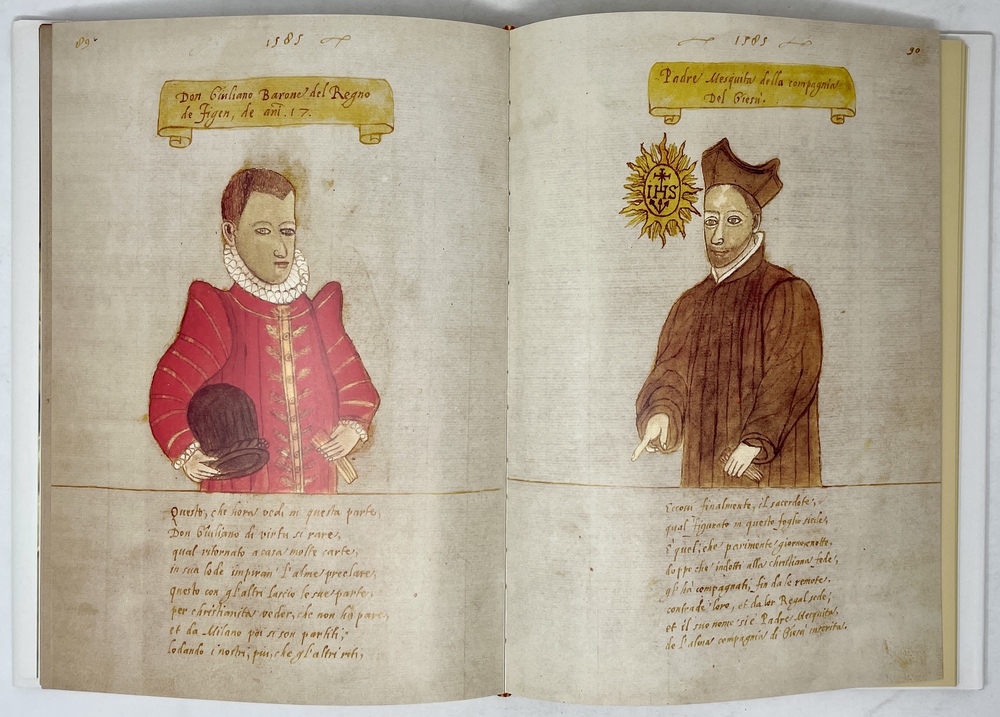 89
1585
Don Giuliano Barone del Regno
de Figen, de anī. 17.
Questo, che hora vedi in questa parte,
Don Giuliano di virtu si rare,
qual ritornato a casa molte carte,
in sua lode impiran' l'alme preclare,
questo con gl'altri lascio le sue parte,
per christianita veder, che non ha pare,
et da Milano poi si son partiti,
lodando i nostri, piu, che gl'altri riti,
1585
90
Padre Mesquita della compagnia
Del Giesu.
IHS
Eccoui finalmente, il sacerdote,
qual figurato in questo foglio siede,
E quel, che parimente giorno, e notte,
doppo che indotti alla christiana fede,
gl'ha compagnati, fin da le remote,
contrade loro, et da lor Regal sede,
et il suo nome si è Padre Mesquita,
de l'alma compagnia di Giesu